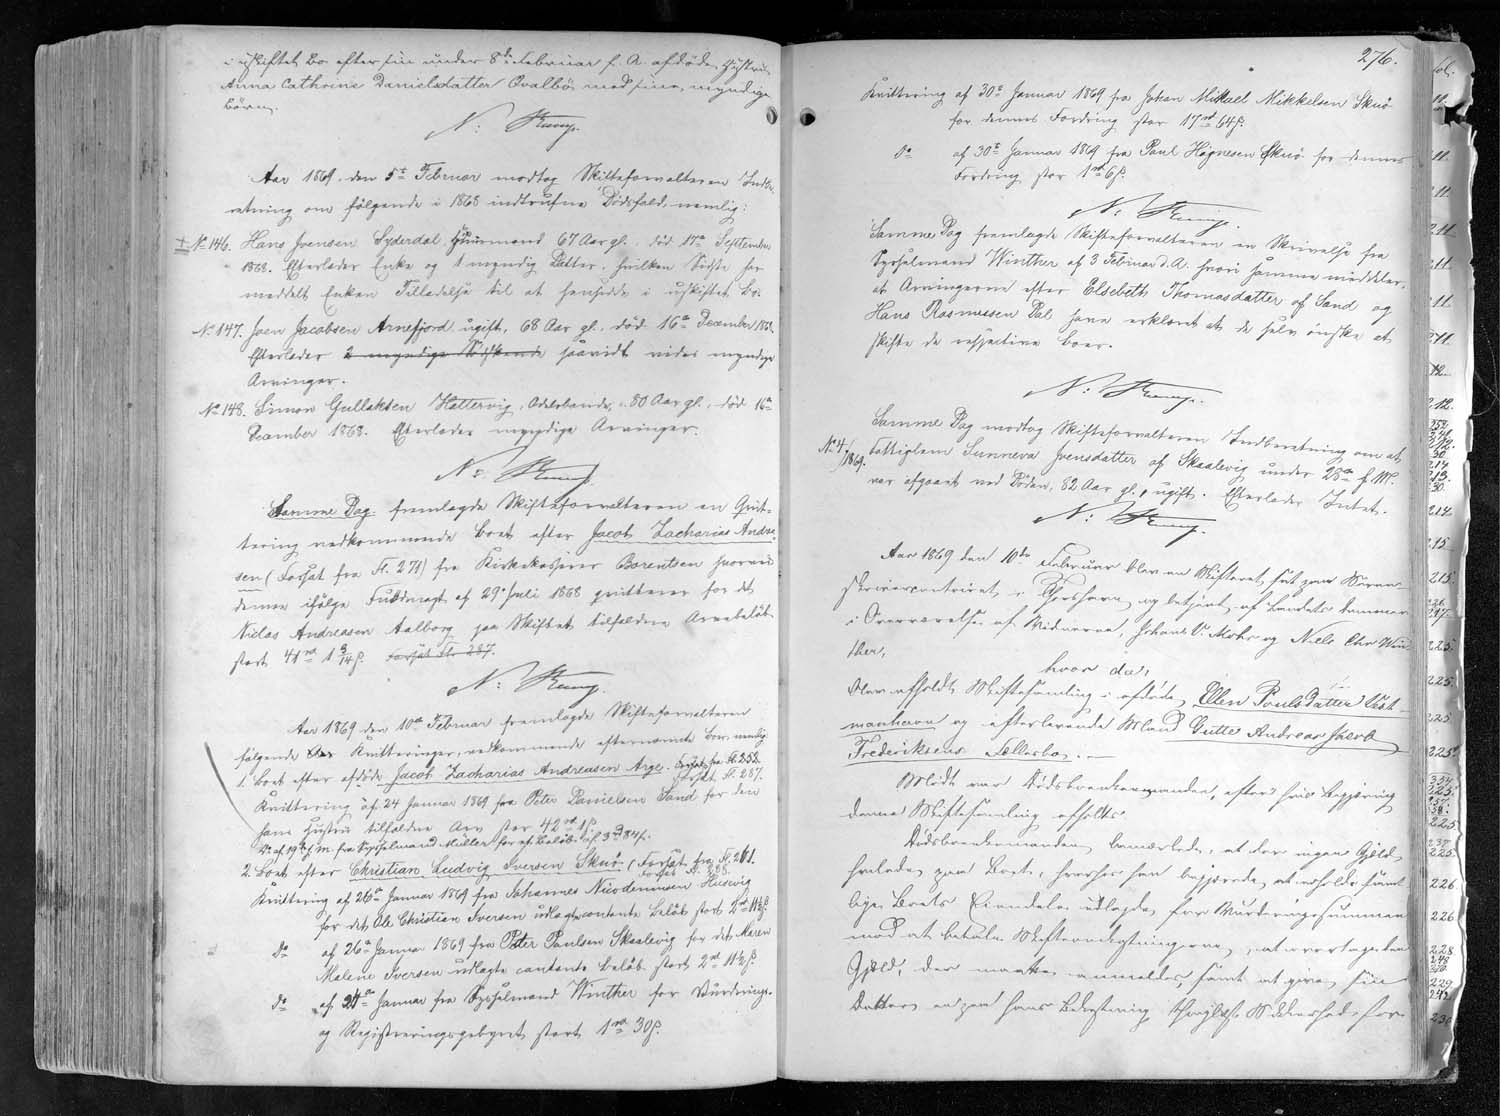 i uskiftet Bo efter sin under 8de Februar f. A. afdøde Hustru
Anna Cathrine Danielsdatter Qvalbø med sine myndige
Børn.
N: Krüng.
Aar 1869 den 5te Februar modtog Skifteforvalteren Indbe-
retning om følgende i 1868 indtrufne Dødsfald, nemlig:
No 146. Hans Joensen Syderdal, Huusmand 67 Aar gl. død 17de September
1868. Efterlader Enke og 1 myndig Datter, hvilken Sidste har
meddelt Enken Tilladelse til at hensidde i uskiftet Bo.
No 147. Joen Jacobsen Arnefjord, ugift, 68 Aar gl. død 16de December 1868.
Efterlader 2 myndige Sødskende saavidt vides myndige
Arvinger.
No 148. Simon Gullaksen Hattervig, Odelsbonde, 80 Aar gl., død 16de
December 1868. Efterlader myndige Arvinger.
N: Krüng.
Samme Dag fremlagde Skifteforvalteren en Qvit-
tering vedkommende Boet efter Jacob Zacharias Andrea-
sen (Forsat fra Fl. 271) fra Kirkekasserer Borentsen hvorved
denne ifølge Fuldmagt af 29 Juli 1868 qvitterer for det
Niclas Andreasen Aalborg paa Skiftet tilfaldne Arvebeløb
stort 41 rd 1 9/14 ß. Forsat Fl. 287.
N: Krüng.
Aar 1869 den 10de Februar fremlagde Skifteforvalteren
følgende Kvitteringer, vedkommende efternævnte Boer nemlig
1. Boet efter afdøde Jacob Zacharias Andreasen Arge. Forsat fra Fl. 252.
Forsat Fl. 287.
Kvittering af 24 Januar 1869 fra Peter Danielsen Sand for den
hans Hustru tilfaldne Arv stor 42 rd 1 ß.
Do af 19 f. M. fra Sysselmand Müller for et Beløb af 3 rd 84 ß.
2. Boet efter Christian Ludvig Iversen Skuø (Forsat fra Fl. 261.
Forsat Fl. 288.
Kvittering af 26de Januar 1869 fra Johannes Nicodemusen Husevig
for det Ole Christian Iversen udlagte contante Beløb stort 2 rd 11½ ß.
do af 26de Januar 1869 fra Peter Paulsen Skaalevig for det Maren
Malene Iversen udlagte contante Beløb stort 2 rd 11½ ß.
do af 24de Januar fra Sysselmand Winther for Vurderings-
og Registreringsgebyret stort 1 rd 30 ß.
276.
Kvittering af 30te Januar 1869 fra Johan Mikael Mikkelsen Skuø
for dennes Fordring stor 17 rd 64 ß.
do af 30te Januar 1869 fra Paul Høgnesen Skuø for dennes
Fordring stor 1 rd 6 ß.
N: Krüng.
Samme Dag fremlagde Skifteforvalteren en Skrivelse fra
Sysselmand Winther af 3 Februar d. A. hvori samme meddeler,
at Arvingerne efter Elsebeth Thomasdatter af Sand og
Hans Rasmussen Dal have erklæret at de selv ønske at
skifte de respective Boer.
N: Krüng.
Samme Dag modtog Skifteforvalteren Indberetning om at
No 4/1869. Fattiglem Sunneva Joensdatter af Skaalevig under 28de f. M.
var afgaaet ved Døden, 82 Aar gl., ugift. Efterlader Intet.
N: Krüng.
Aar 1869 den 10de Februar blev en Skifteret sat paa Soren-
skrivercontoiret i Thorshavn og betjent af Landets Sorenskriver
i Overværelse af Vidnerne, Johans V. Mohr og Niels Chr Win-
ther,
hvor da,
blev afholdt Skiftesamling i afdøde Ellen Poulsdatter Vest-
manhavn og efterlevende Mand Gutte Andreas Jacob
Frederiksens Fællesbo.
Mødt var Dødsboenkemanden, efter hvis Begjæring
denne Skiftesamling afholdtes.
Dødsboenkemanden bemærkede, at der ingen Gjæld
hvilede paa Boet, hvorfor han begjærede at erholde samt-
lige Boets Eiendele udlagte for Vurderingssummen
mod at betale Skifteomkostningerne, at overtage den
Gjæld, der maatte anmeldes, samt at give sin
Datter en paa hans Bekostning